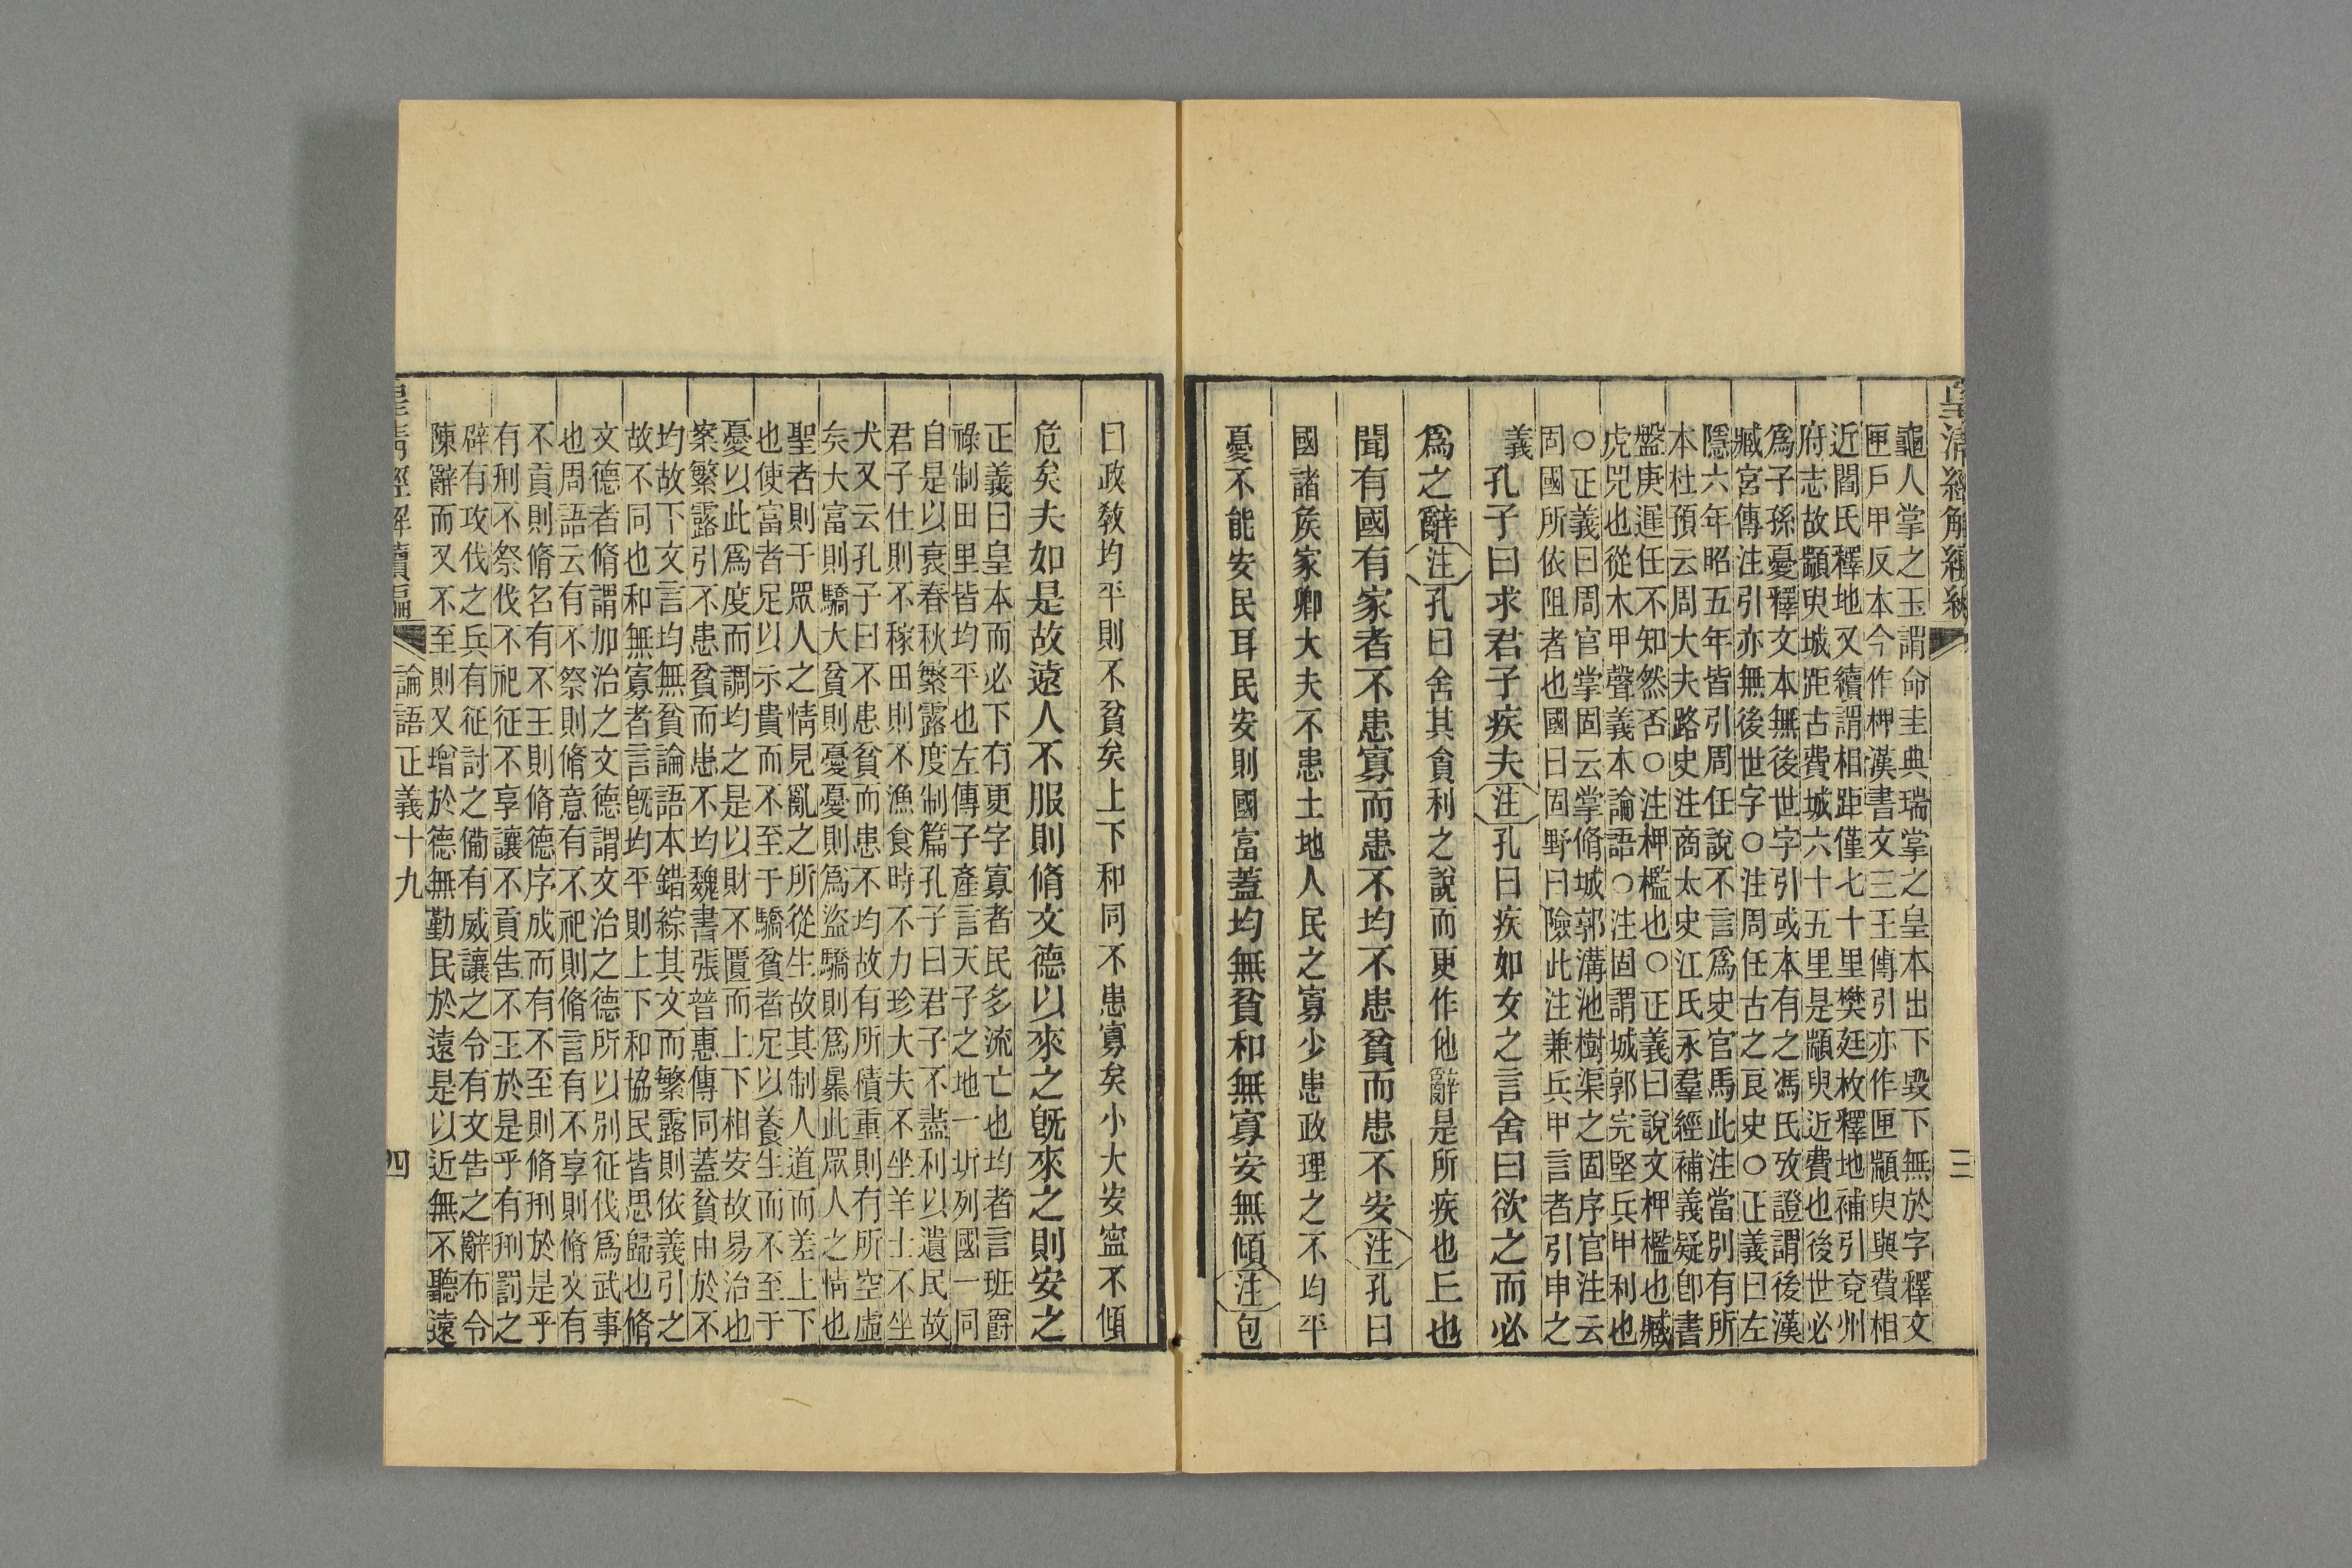 皇清經解續編 三
龜人掌之玉謂命圭典瑞掌之皇本出下毀下無於字釋文
匣戶甲反本今作柙漢書文三王傳引亦作匣顓臾與費相
近閻氏釋地又續謂相距僅七十里樊廷枚釋地補引兗州
府志故顓臾城距古費城六十五里是顓臾近費也後世必
爲子孫憂釋文本無後世字引或本有之馮氏攷證謂後漢
臧宮傳注引亦無後世字○注周任古之良史○正義曰左
隱六年昭五年皆引周任說不言爲史官馬此注當別有所
本杜預云周大夫路史注商太史江氏永羣經補義疑卽書
盤庚遲任不知然否○注柙檻也○正義曰說文柙檻也臧
虎兕也從木甲聲義本論語○注固謂城郭完堅兵甲利也
○正義曰周官掌固云掌脩城郭溝池樹渠之固序官注云
固國所依阻者也國曰固野曰險此注兼兵甲言者引申之
義
孔子曰求君子疾夫注孔曰疾如女之言舍曰欲之而必
爲之辭注孔曰舍其貪利之說而更作他辭是所疾也丘也
聞有國有家者不患寡而患不均不患貧而患不安注孔曰
國諸矦家卿大夫不患土地人民之寡少患政理之不均平
憂不能安民耳民安則國富蓋均無貧和無寡安無傾注包
曰政敎均平則不貧矣上下和同不患寡矣小大安寍不傾
危矣夫如是故遠人不服則脩文德以來之旣來之則安之
正義曰皇本而必下有更字寡者民多流亡也均者言班爵
祿制田里皆均平也左傳子產言天子之地一圻列國一同
自是以衰春秋繁露度制篇孔子曰君子不盡利以遺民故
君子仕則不稼田則不漁食時不力珍大夫不坐羊士不坐
犬又云孔子曰不患貧而患不均故有所積重則有所空虛
矣大富則驕大貧則憂憂則爲盜驕則爲暴此眾人之情也
聖者則于眾人之情見亂之所從生故其制人道而差上下
也使富者足以示貴而不至于驕貧者足以養生而不至于
憂以此爲度而調均之是以財不匱而上下相安故易治也
案繁露引不患貧而患不均魏書張普惠傳同蓋貧由於不
均故下文言均無貧論語本錯綜其文而繁露則依義引之
故不同也和無寡者言旣均平則上下和協民皆思歸也脩
文德者脩謂加治之文德謂文治之德所以別征伐爲武事
也周語云有不祭則脩意有不祀則脩言有不享則脩文有
不貢則脩名有不王則脩德序成而有不至則脩刑於是乎
有刑不祭伐不祀征不享讓不貢告不王於是乎有刑罰之
辟有攻伐之兵有征討之備有威讓之令有文告之辭布令
陳辭而又不至則又增於德無勤民於遠是以近無不聽遠
皇清經解續編 論語正義十九 四